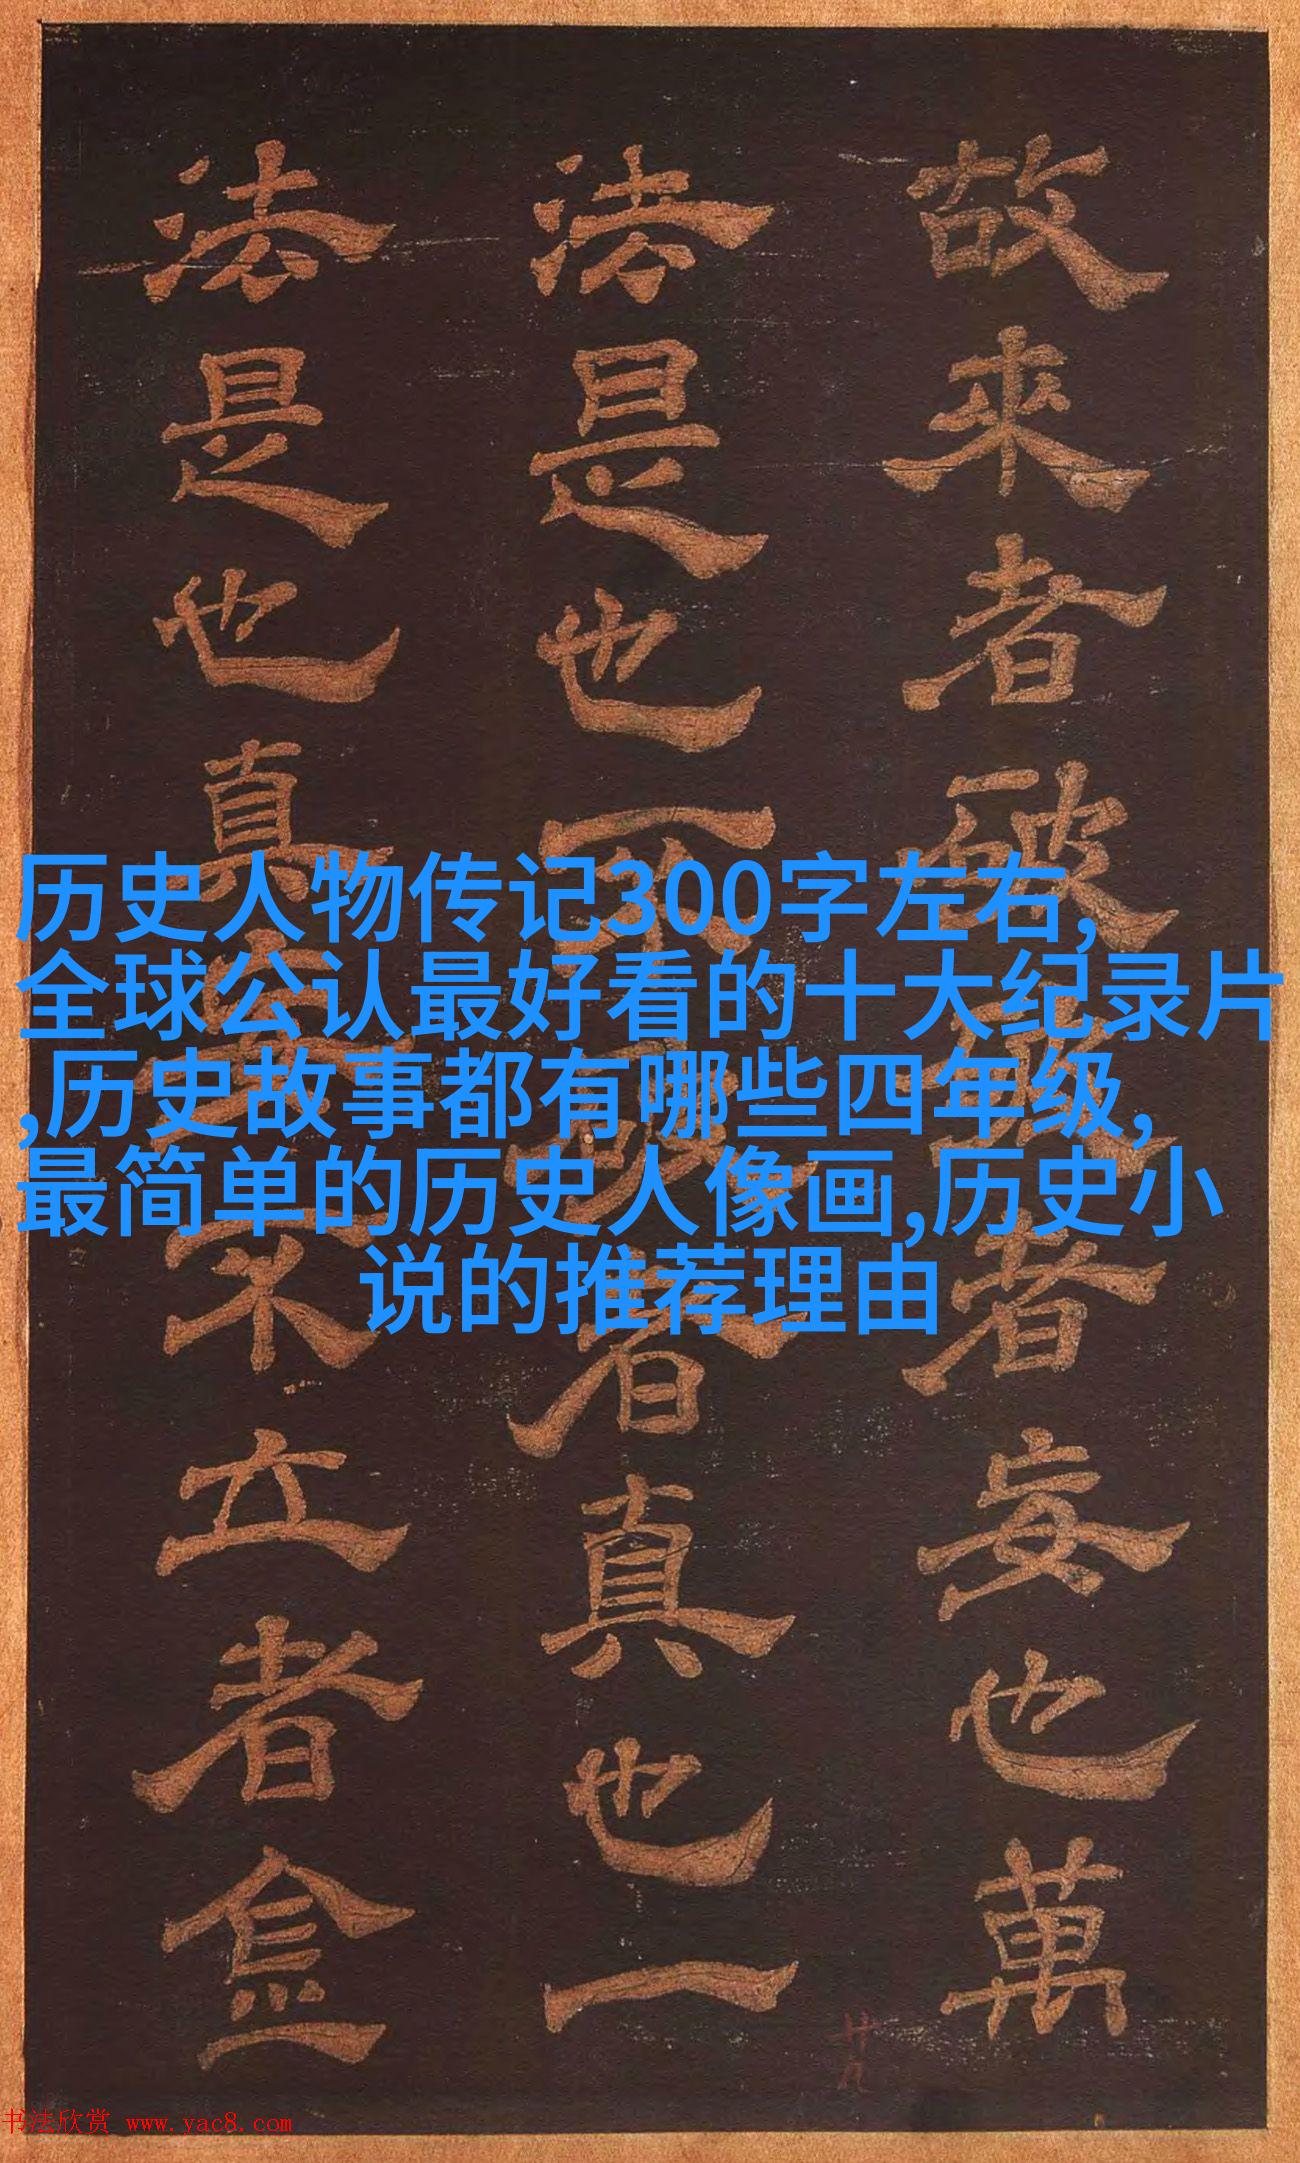 故來者破者妄也萬
法是也不破者真也一
法是也真空不立者
历史人物传记300字左右,
全球公认最好看的十大纪录片
,历史故事都有哪些四年级,
最简单的历史人像画,历史小
说的推荐理由
廿九
书法欣赏 www.yac8.com